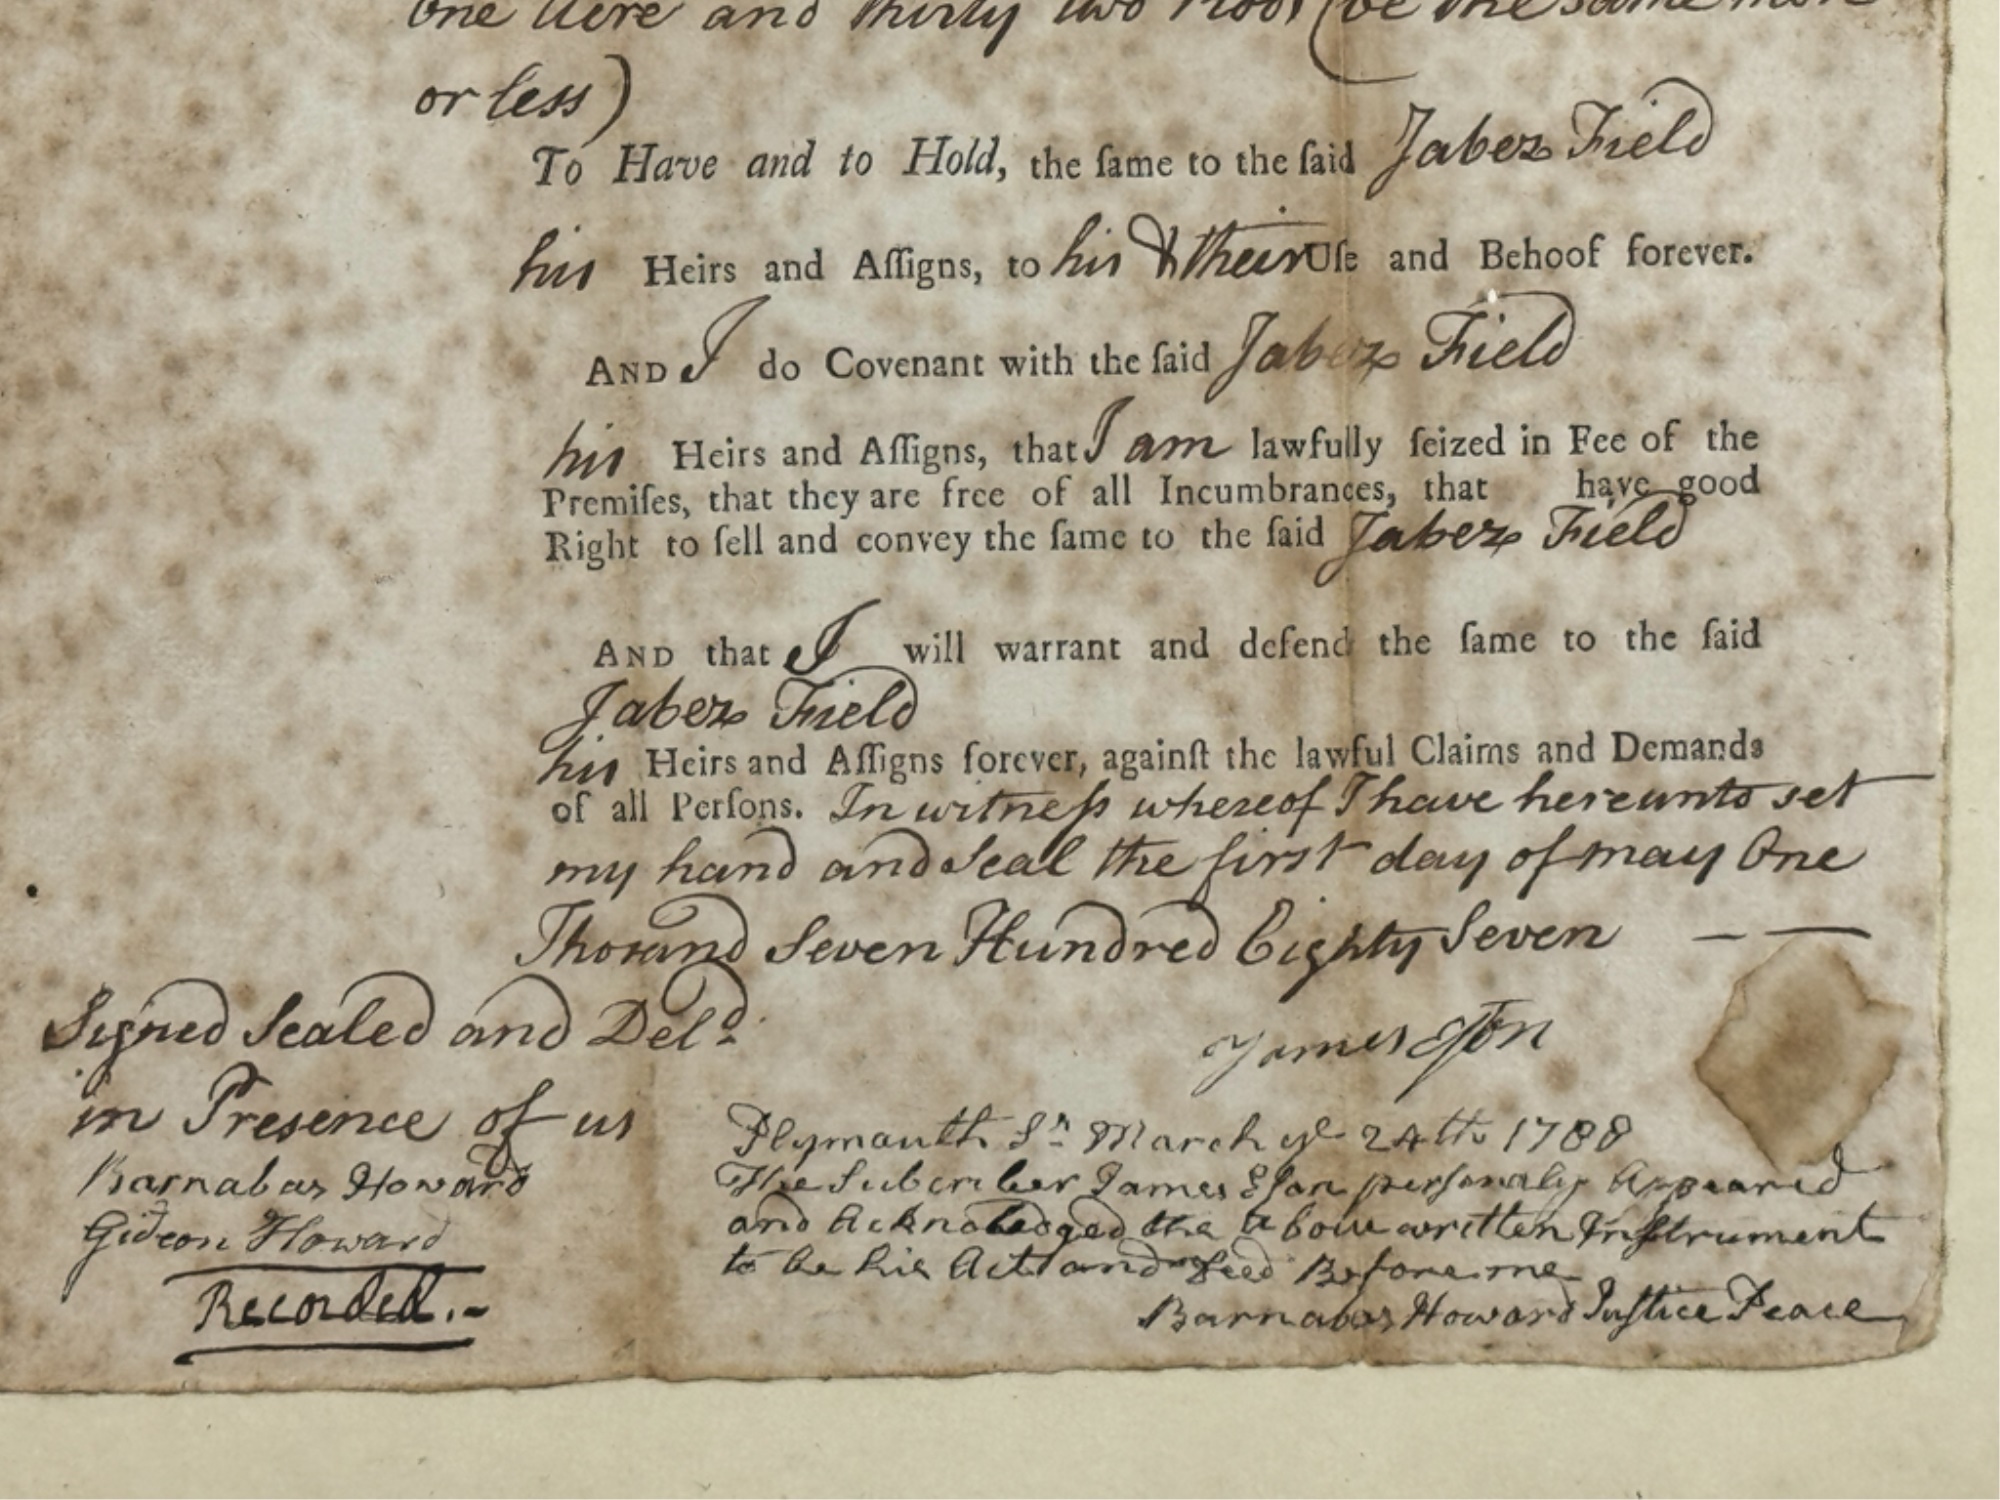 One Acre and thirty two Rods (be the same more
or less)
To Have and to Hold, the ſame to the ſaid Jabez Field
his Heirs and Aſſigns, to his & their Uſe and Behoof forever.
AND I do Covenant with the ſaid Jabez Field
his Heirs and Aſſigns, that I am lawfully ſeized in Fee of the
Premiſes, that they are free of all Incumbrances, that have good
Right to ſell and convey the ſame to the ſaid Jabez Field
AND that I will warrant and defend the ſame to the ſaid
Jabez Field
his Heirs and Aſſigns forever, againſt the lawful Claims and Demands
of all Perſons. In witneſs whereof I have hereunto set
my hand and Seal the first day of may One
Thosand Seven Hundred Eighty Seven — —
Signed Sealed and Deld.
James Eſon
in Presence of us
Plymouth Ss March ye 24th 1788
Barnabas Howard
The Subcriber James Eſon perſonaly Appeared
Gideon Howard
and Acknoledged the above written Inſtrument
to be his Act and Deed Before me
Recorded.-
Barnabas Howard Juſtice Peace